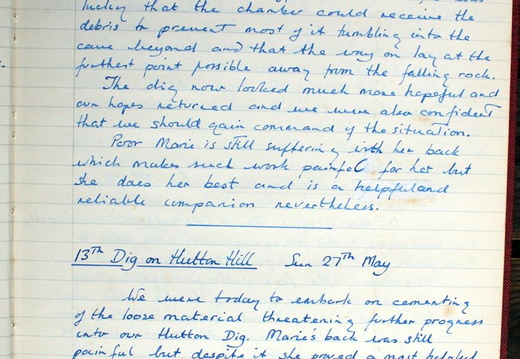 lucky that the chamber could receive the
debris to prevent most of it tumbling into the
cave beyond and that the way on lay at the
furthest point possible away from the falling rock.
The dig now looked much more hopeful and
our hopes returned and we were also confident
that we should gain command of the situation.
Poor Marie is still suffering with her back
which makes such work painful for her but
she does her best and is a helpful and
reliable companion nevertheless.
13th Dig on Hutton Hill Sun 27th May
We were today to embark on cementing
of the loose material threatening further progress
into our Hutton Dig. Marie's back was still
painful but despite it she proved a most helpful